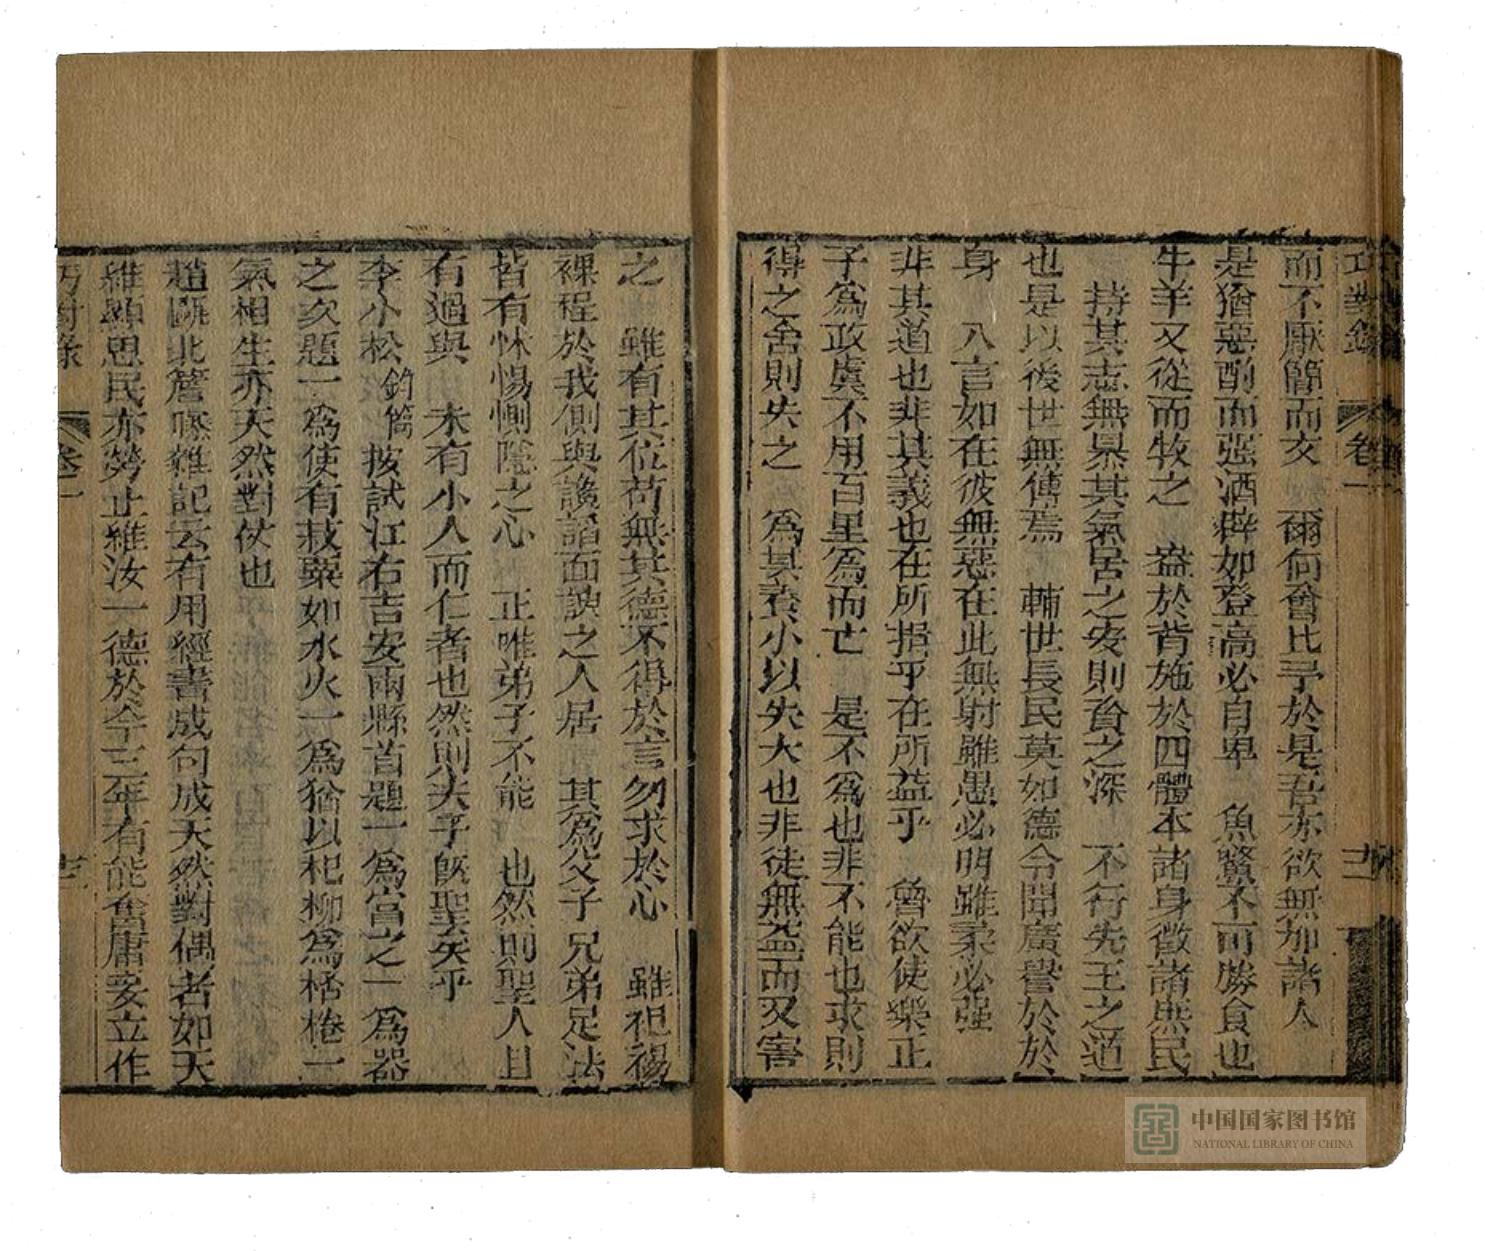 巧對錄 卷一 十二
而不厭簡而文 爾何曾比予於是吾亦欲無加諸人
是猶惡醉而强酒辟如登高必自卑 魚鱉不可勝食也
牛羊又從而牧之 盎於背施於四體本諸身徵諸庶民
持其志無暴其氣居之安則資之深 不行先王之道
也是以後世無傳焉 輔世長民莫如德令聞廣譽於於
身 八言如在彼無惡在此無射雖愚必明雖柔必强
非其道也非其義也在所損乎在所益乎 魯欲使樂正
子爲政虞不用百里爲而亡 是不爲也非不能也求則
得之舍則失之 爲其養小以失大也非徒無益而又害
之 雖有其位苟無其德不得於言勿求於心 雖袒裼
裸程於我側與讒諂面諛之人居 其爲父子兄弟足法
皆有怵惕惻隱之心 正唯弟子不能 也然則聖人且
有過與 未有小人而仁者也然則夫子旣聖矣乎
李小松 鈞簡 按試江右吉安兩縣首題一爲富之一爲器
之次題一爲使有菽粟如水火一爲猶以杞柳爲桮棬二
氣相生亦天然對仗也
趙甌北簷曝雜記云有用經書成句成天然對偶者如天
維顯思民亦勞止維汝一德於今三年有能奮庸妄立作
巧對錄 卷一 十三
中国国家图书馆
NATIONAL LIBRARY OF CHINA